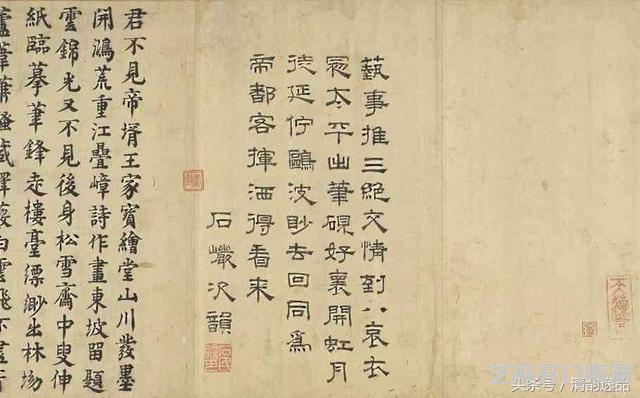 蓺事推三絕交情到八哀衣
冠太平出筆硯好褱開虹月
徒延佇鷗波眇去回同為
帝都客揮洒得看來
石巖次韻
君不見帝壻王家寶繪堂山川發墨
開鴻荒重江疊嶂詩作畫東坡留題
雲錦光又不見後身松雪齋中叟伸
紙臨摹筆鋒走樓臺縹渺出林坳
蘆葦蕭騷藏澤藪白雲飛不盡
头条号／清韵逸品